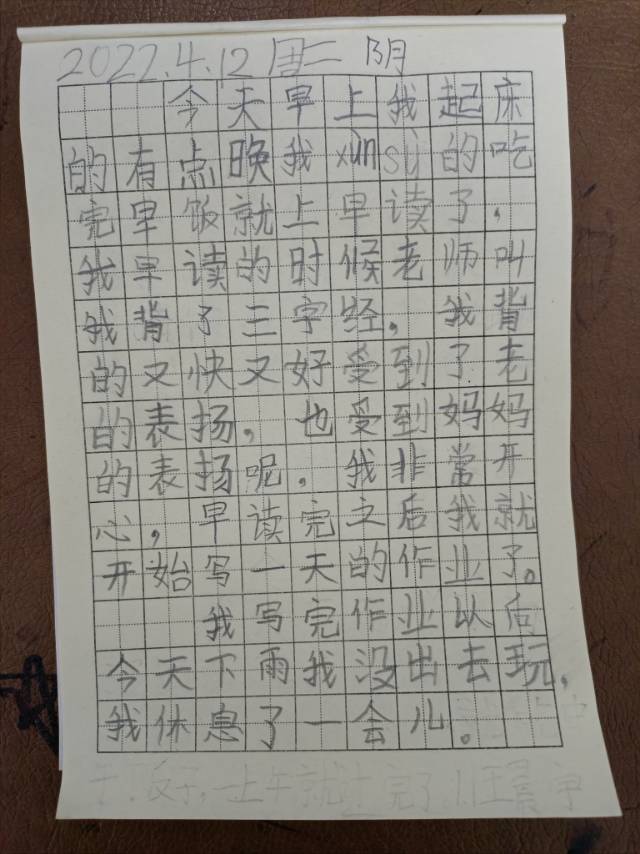 2022.4.12 周二 阴
今天早上我起床
的有点晚我xùn sù的吃
完早饭就上早读了，
我早读的时候老师叫
我背了三字经。我背
的又快又好受到了老
的表扬，也受到妈妈
的表扬呢。我非常开
心，早读完之后我就
开始写一天的作业了。
我写完作业以后
今天下雨我没出去玩，
我休息了一会儿。
上午就
完了